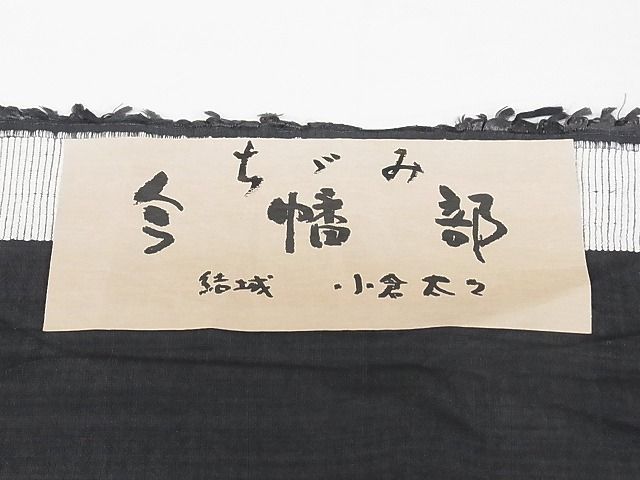 ちゞみ
今幡部
結城 小倉太々